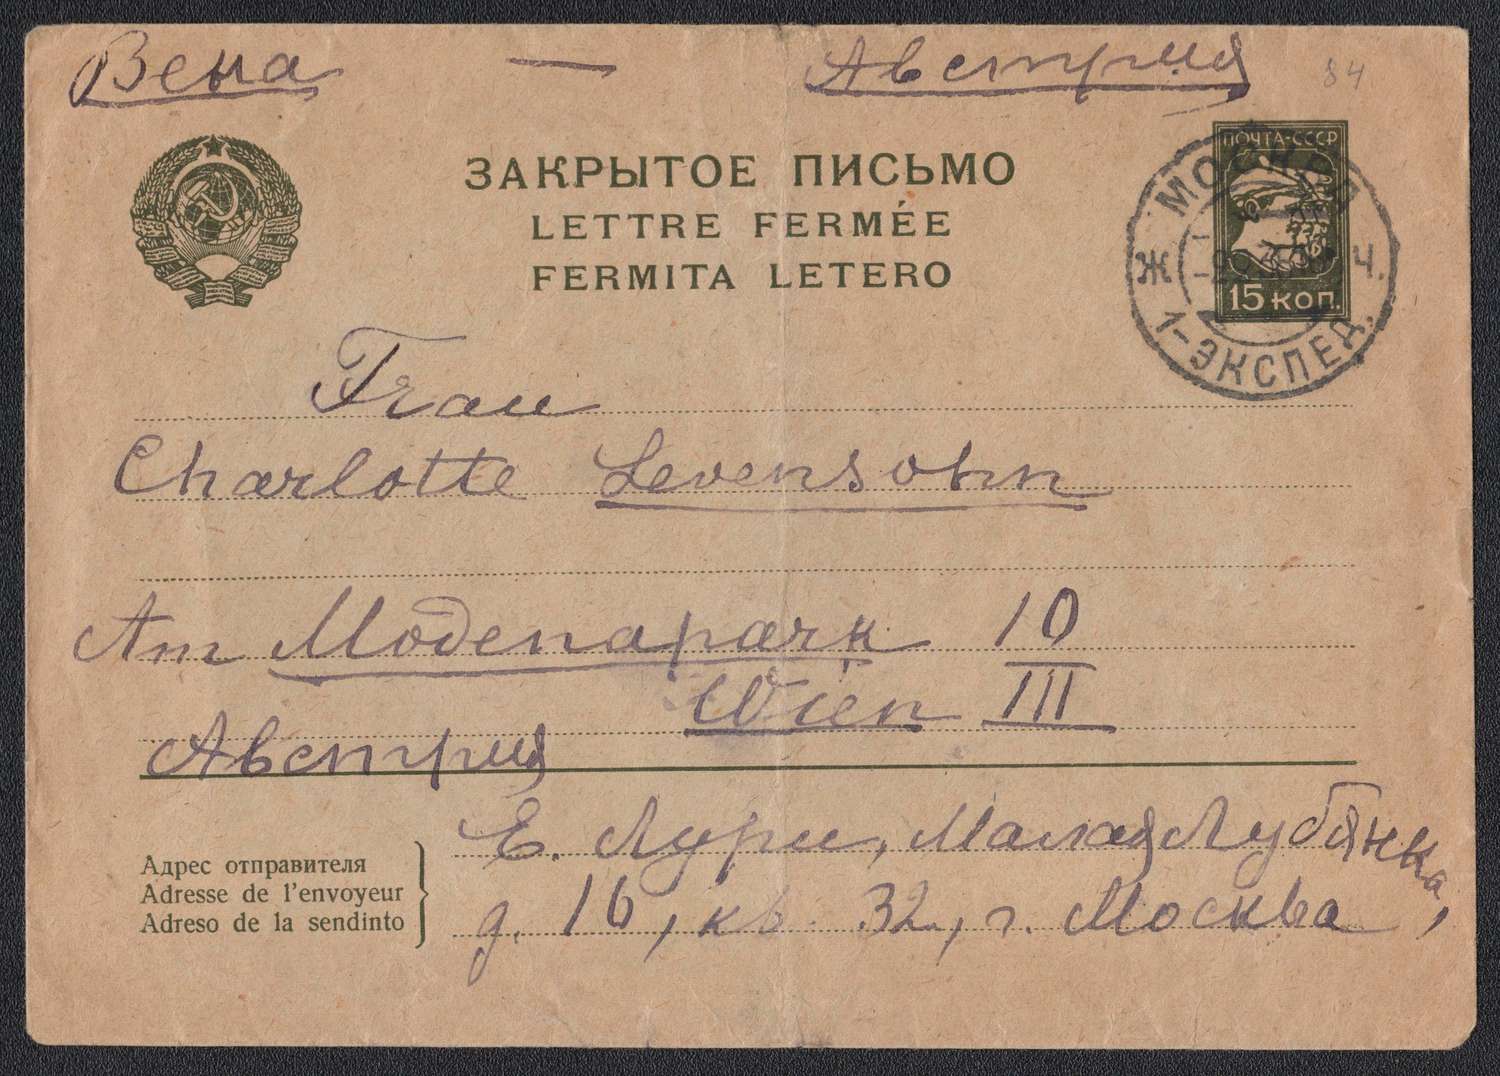 Вена — Австрия
84
ПОЧТА-СССР
15 КОП.
МОСКВА
Ж Ч.
1-ЭКСПЕД.
ЗАКРЫТОЕ ПИСЬМО
LETTRE FERMÉE
FERMITA LETERO
Frau
Charlotte Levensohn
Am Modenapark 10
Wien III
Австрия
Е. Лури, Малая Лубянка,
д. 16, кв. 32, г. Москва
Адрес отправителя
Adresse de l'envoyeur
Adreso de la sendinto